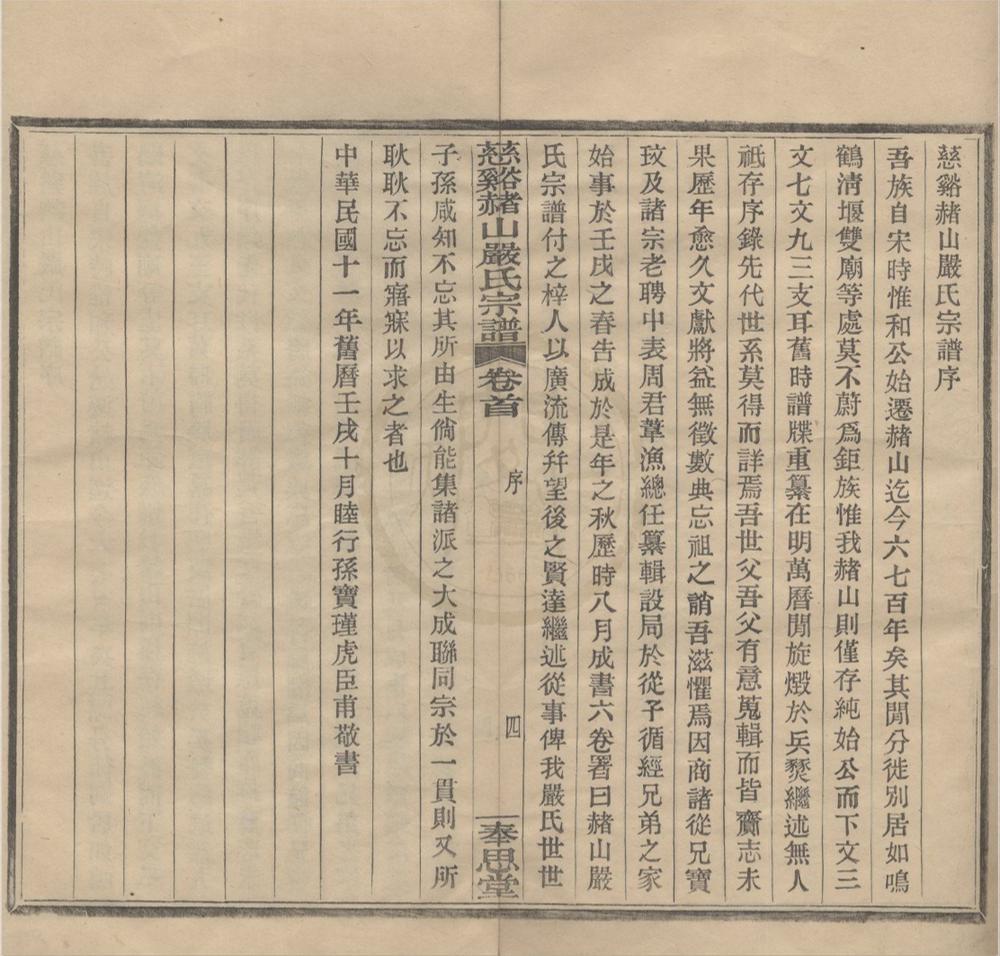 慈谿赭山嚴氏宗譜序
吾族自宋時惟和公始遷赭山迄今六七百年矣其閒分徙別居如鳴
鶴淸堰雙廟等處莫不蔚爲鉅族惟我赭山則僅存純始公而下文三
文七文九三支耳舊時譜牒重纂在明萬曆閒旋燬於兵燹繼述無人
祗存序錄先代世系莫得而詳焉吾世父吾父有意蒐輯而皆齎志未
果歷年愈久文獻將益無徵數典忘祖之誚吾滋懼焉因商諸從兄寶
玟及諸宗老聘中表周君葦漁總任纂輯設局於從子循經兄弟之家
始事於壬戌之春告成於是年之秋歷時八月成書六卷署曰赭山嚴
氏宗譜付之梓人以廣流傳幷望後之賢達繼述從事俾我嚴氏世世
慈谿赭山嚴氏宗譜 卷首 序 四 奉思堂
子孫咸知不忘其所由生倘能集諸派之大成聯同宗於一貫則又所
耿耿不忘而寤寐以求之者也
中華民國十一年舊曆壬戌十月睦行孫寶瑾虎臣甫敬書